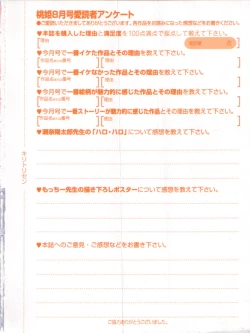 桃姫8月号愛読者アンケート
♥本誌を購入した理由と満足度を100点満点で採点して教えて下さい。
理由
満足度 点
♥今月号で一番イケた作品とその理由を教えて下さい。
作品名or番号
理由
♥今月号で一番イケなかった作品とその理由を教えて下さい。
作品名or番号
理由
♥今月号で一番絵柄が魅力的に感じた作品とその理由を教えて下さい。
作品名or番号
理由
♥今月号で一番ストーリーが魅力的に感じた作品とその理由を教えて下さい。
作品名or番号
理由
先生の「ハロ・ハロ」について感想を教えて下さい。
♥もっちー先生の描き下ろしポスターについて感想を教えて下さい。
♥本誌へのご意見・ご感想などをお書き下さい。
ご協力ありがとうございました。
キリトリセン